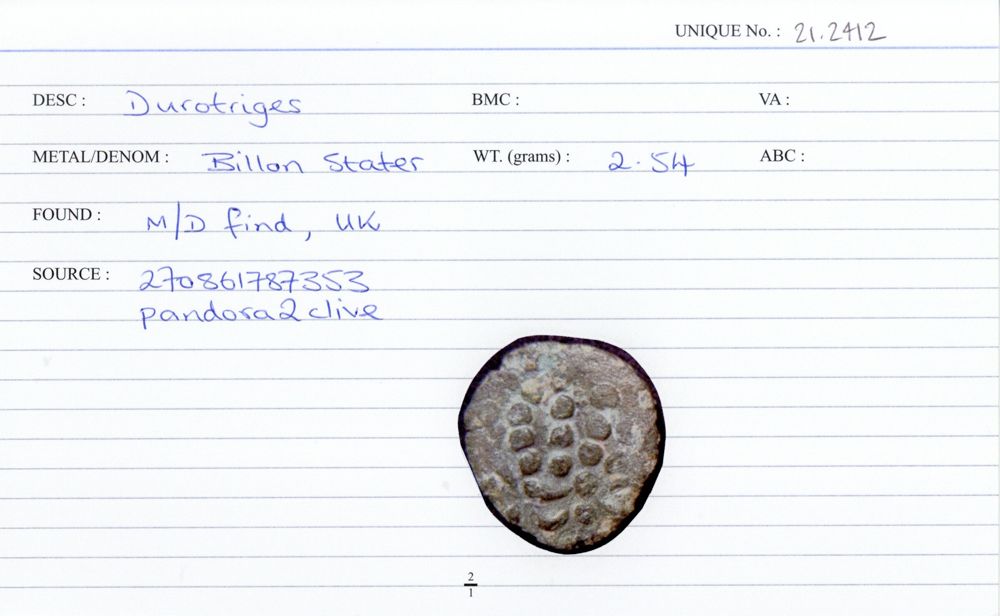 UNIQUE No. : 21.2412
DESC : Durotriges BMC : VA :
METAL/DENOM : Billon Stater WT. (grams) : 2.54 ABC :
FOUND : M/D find, UK
SOURCE : 270861787353
pandora2clive
2
1